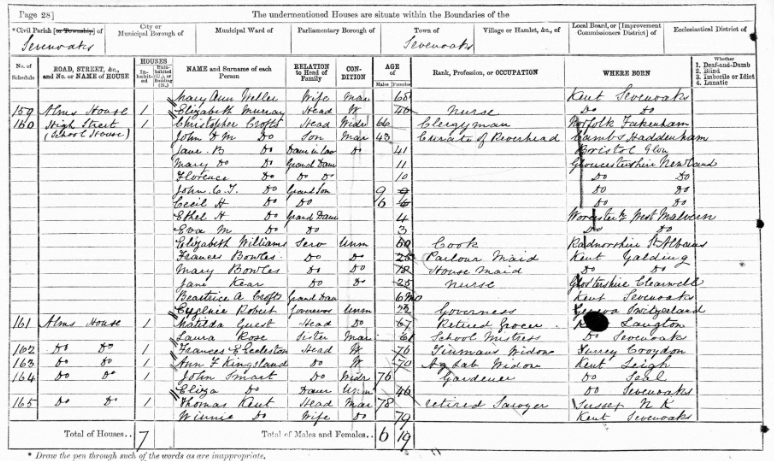 Page 28]
The undermentioned Houses are situate within the Boundaries of the
*Civil Parish [or Township] of
City or Municipal Borough of
Municipal Ward of
Parliamentary Borough of
Town of
Village or Hamlet, &c., of
Local Board, or [Improvement Commissioners District] of
Ecclesiastical District of
Sevenoaks Sevenoaks
No. of Schedule
ROAD, STREET, &c., and No. or NAME of HOUSE
HOUSES
NAME and Surname of each Person
RELATION to Head of Family
CONDITION
AGE of
Males Females
Rank, Profession, or OCCUPATION
WHERE BORN
Whether
1. Deaf-and-Dumb
2. Blind
3. Imbecile or Idiot
4. Lunatic
Mary Ann Weller Wife Mar 65 Kent Sevenoaks
159 Alms House 1 Elizabeth Murray Head W 40 Nurse Do Do
160 High Street (School House) 1 Christopher Crofts Head Widr 66 Clergyman Norfolk Fakenham
John D M Do Son Mar 43 Curate of Riverhead Cambs Haddenham
Jane B Do Daur in law Do 41 Bristol Glos
Mary Do Do Grand Daur 11 Gloucestershire Newland
Florence Do Do Do 10 Do Do
John C. T. Do Grand Son 9 Do Do
Cecil H Do Do 6 Do Do
Ethel H Do Grand Daur 4 Worcester West Malvern
Eva M Do Do 3 Do Do
Elizabeth Williams Serv Unm 60 Cook Radnorshire St Albans
Frances Bowles Do Do 25 Parlour Maid Kent Yalding
Mary Bowles Do Do 18 House Maid Do Do
Jane Kear Do Do 25 Nurse Glostershire Clearwell
Beatrice A Crofts Grand Dau 6 mo Kent Sevenoaks
Eugenie Robert Governess Unm 22 Governess Geneva Switzerland
161 Alms House 1 Matilda Guest Head Do 67 Retired Grocer Langton
Laura Rose Sister Mar 61 School Mistress Do Sevenoaks
162 Do Do 1 Frances E Eccleston Head W 76 Tinmans Widow Surrey Croydon
163 Do Do 1 Ann F Kingsland Do W 70 Ag Lab Widow Kent Leigh
164 Do Do 1 John Smart Do Widr 76 Gardener Do Seal
Eliza Do Daur Unm 46 Do Sevenoaks
165 Do Do 1 Thomas Kent Head Mar 78 retired Sawyer Sussex N K
Winnie Do Wife Do 79 Kent Sevenoaks
Total of Houses.. 7 Total of Males and Females.. 6 19
* Draw the pen through such of the words as are inappropriate.